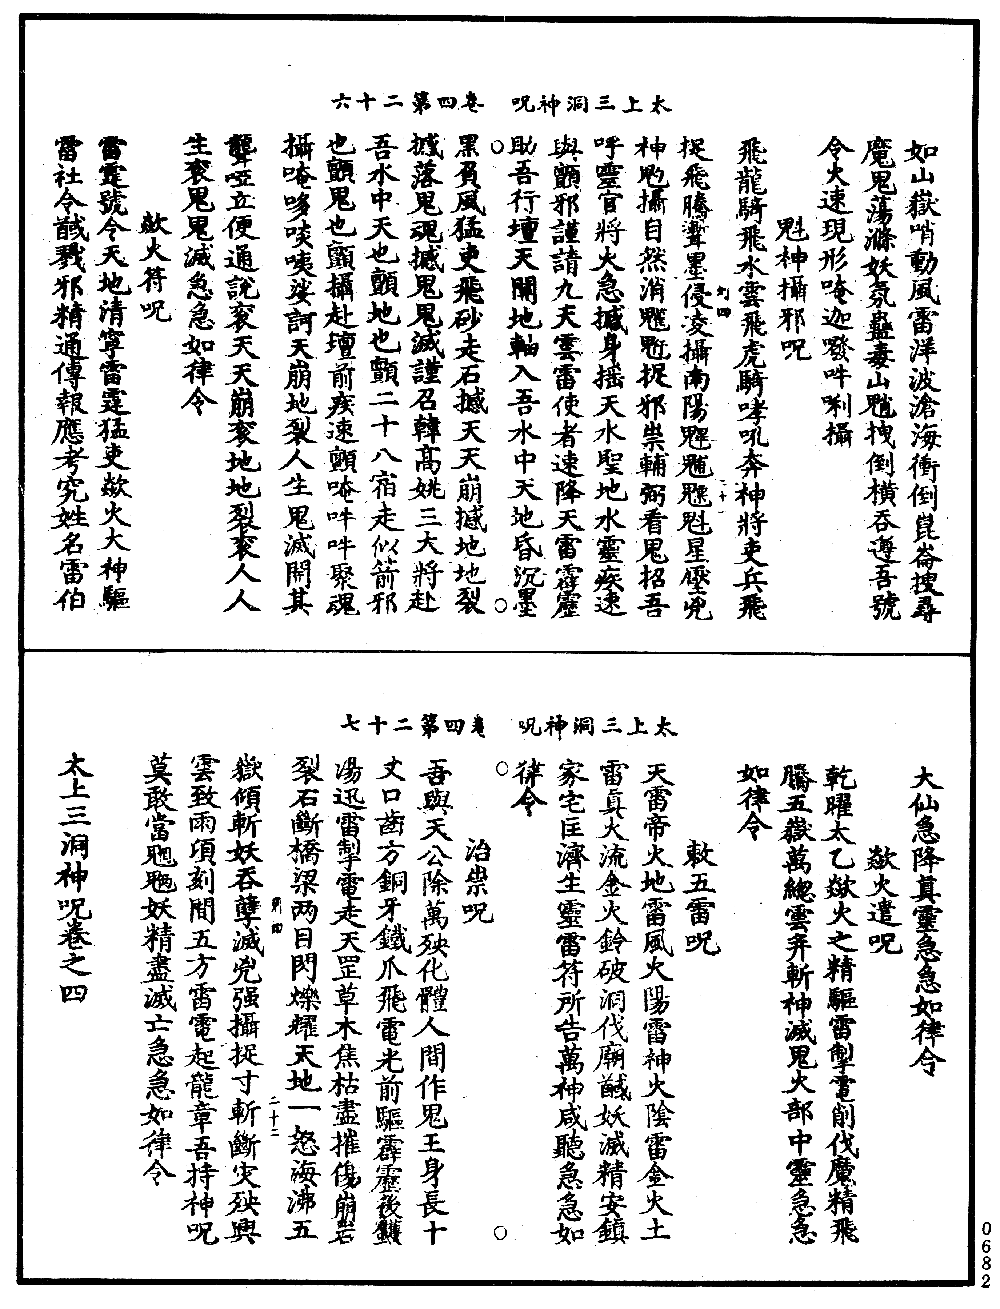 太上三洞神呪　卷四第二十六
如山嶽哨動風雷洋波滄海衝倒崑崙搜尋
魔鬼蕩滌妖氛蠱毒山魈拽倒橫吞遵吾號
令火速現形唵迦發吽唎攝
魁神攝邪呪
飛龍騎飛水雲飛虎騎哮吼奔神將吏兵飛
捉飛騰聾墨侵凌攝南陽魓魒魁星壓兇
神攝自然消捉邪祟輔弼看鬼招吾
呼靈官將火急撼身搖天水聖地水靈疾速
與顫邪謹請九天雲雷使者速降天雷霹靂
助吾行壇天關地軸入吾水中天地昏沉墨
黑負風猛吏飛砂走石撼天天崩撼地地裂
攝落鬼魂撼鬼鬼滅謹召韓高姚三大將赴
吾水中天也顫地也顫二十八宿走似箭邪
也顫鬼也顫攝赴壇前疾速顫唵吽吽聚魂
攝唵哆唊咦娑訶天崩地裂人生鬼滅開其
聾啞立便通說衮天天崩衮地地裂衮人人
生衮鬼鬼滅急急如律令
歘火符呪
雷霆號令天地清寧雷霆猛吏歘火大神驅
雷社令馘戮邪精通傳報應考究姓名雷伯
太上三洞神呪　卷四第二十七
大仙急降真靈急急如律令
歘火遣呪
乾曜太乙歘火之精驅雷掣電削伐魔精飛
騰五嶽萬總雲奔斬神滅鬼火部中靈急急
如律令
敕五雷呪
天雷帝火地雷風火陽雷神火陰雷金火土
雷真火流金火鈴破洞伐廟馘妖滅精安鎮
家宅匡濟生靈雷符所告萬神咸聽急急如
律令
治祟呪
吾與天公除萬殃化體人間作鬼王身長十
丈口齒方銅牙鐵爪飛電光前驅霹靂後鑊
湯迅雷掣電走天罡草木焦枯盡摧傷崩岩
裂石斷橋梁两目閃爍耀天地一怒海沸五
嶽傾斬妖吞孽滅兇强攝捉寸斬斷災殃興
雲致雨項刻間五方雷電起龍章吾持神呪
莫敢當魍魎妖精盡滅亡急急如律令
太上三洞神呪卷之四
0682